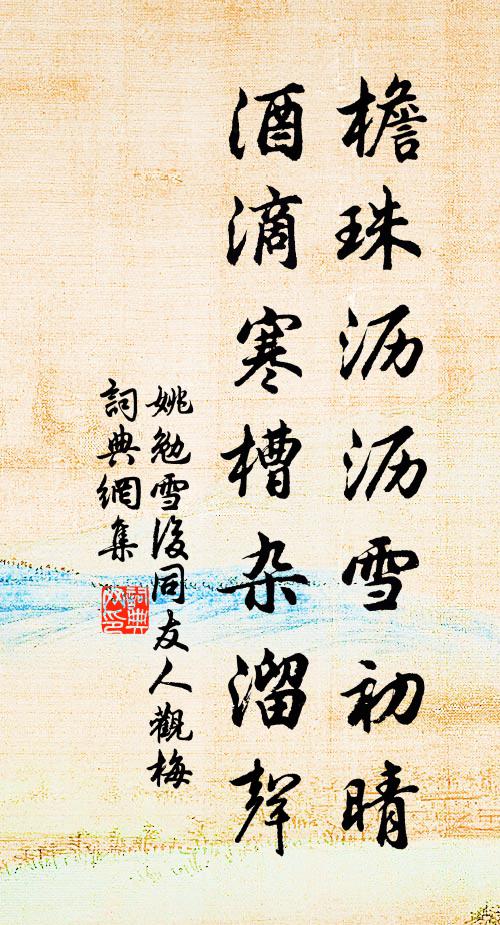 檐珠沥沥雪初晴
酒滴寒槽杂溜聲
姚勉雪後同友人觀梅
詞典網集